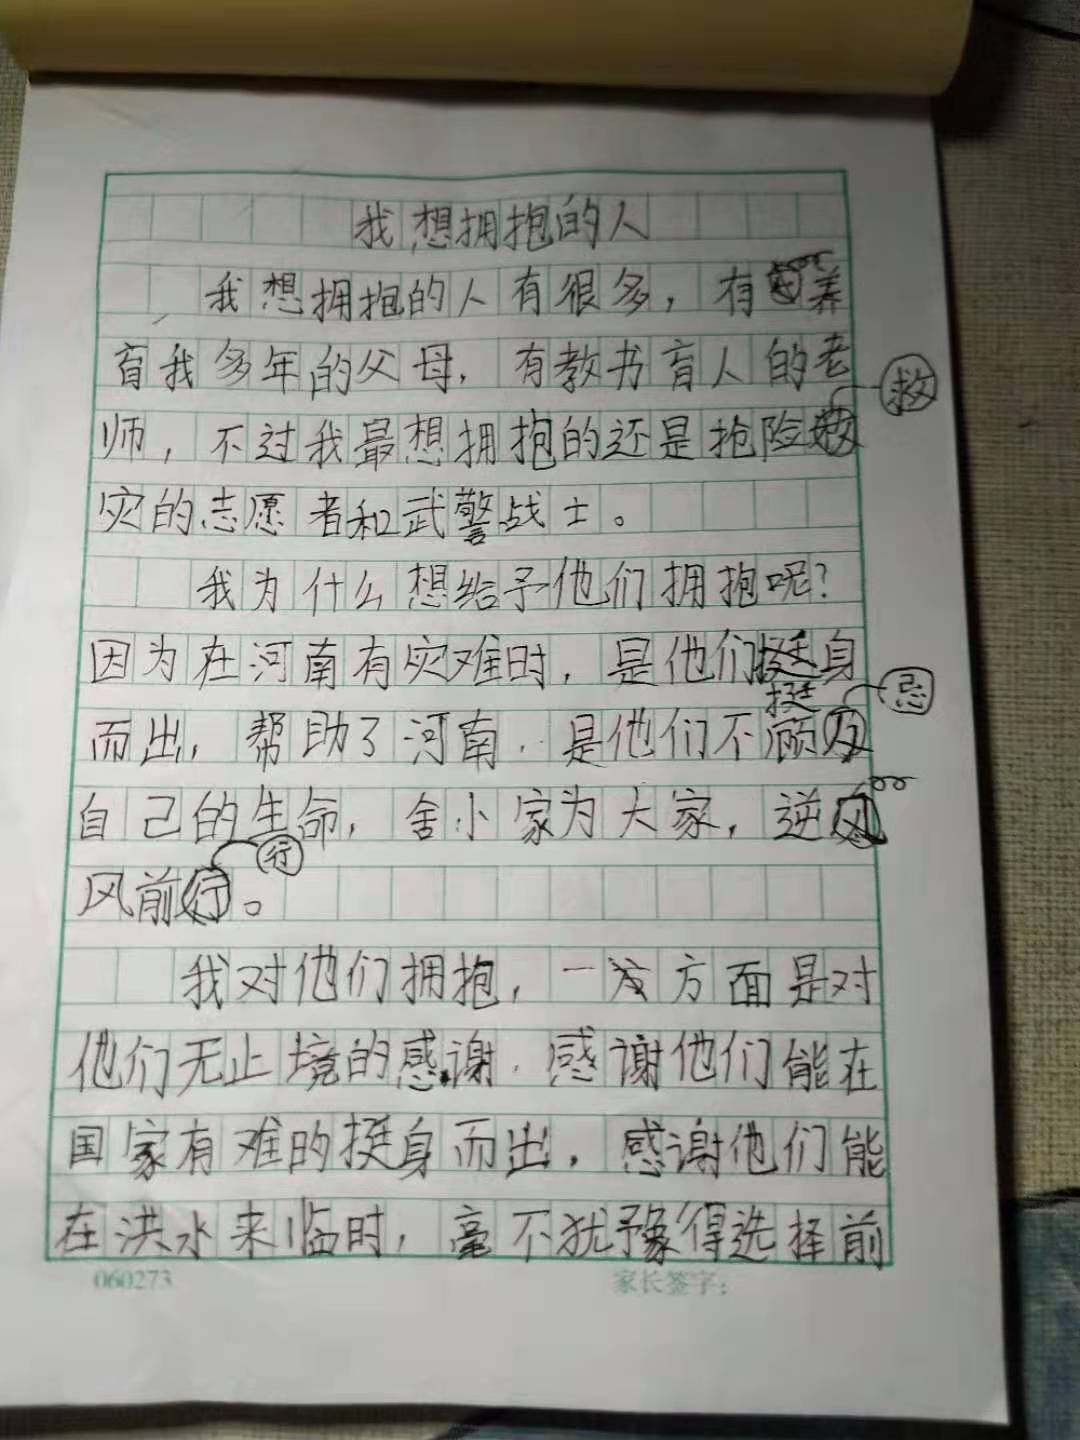 我想拥抱的人
我想拥抱的人有很多，有养
育我多年的父母，有教书育人的老
救
师，不过我最想拥抱的还是抢险救
灾的志愿者和武警战士。
我为什么想给予他们拥抱呢？
因为在河南有灾难时，是他们挺身
挺
忌
而出，帮助了河南，是他们不顾及
自己的生命，舍小家为大家，逆风
行
风前行。
我对他们拥抱，一发方面是对
他们无止境的感谢，感谢他们能在
国家有难的挺身而出，感谢他们能
在洪水来临时，毫不犹豫得选择前
060273
家长签字：